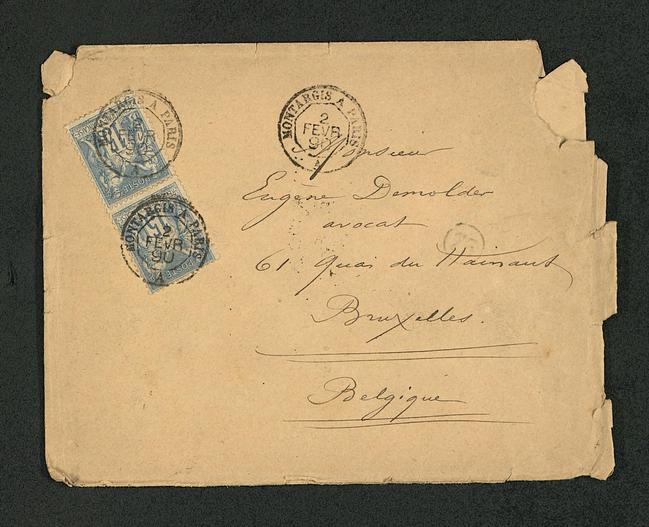 MONTARGIS A PARIS
2
FEVR
90
MONTARGIS A PARIS
MONTARGIS A PARIS
2
FEVR
90
Monsieur
Eugène Demolder
avocat
61 Quai du Hainaut
Bruxelles.
Belgique